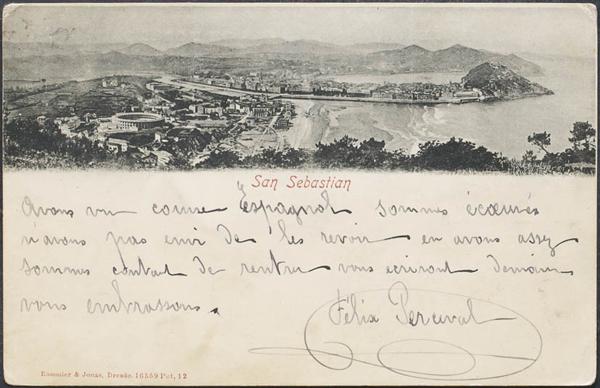 San Sebastian
Avons vu course Espagnol sommes écœurés
n'avons pas envi de les revoir en avons assez
sommes contant de rentrer vous écriront demain
vous embrassons.
Félix Perceval
Roemmler & Jonas, Dresde. 16559 Pot, 12